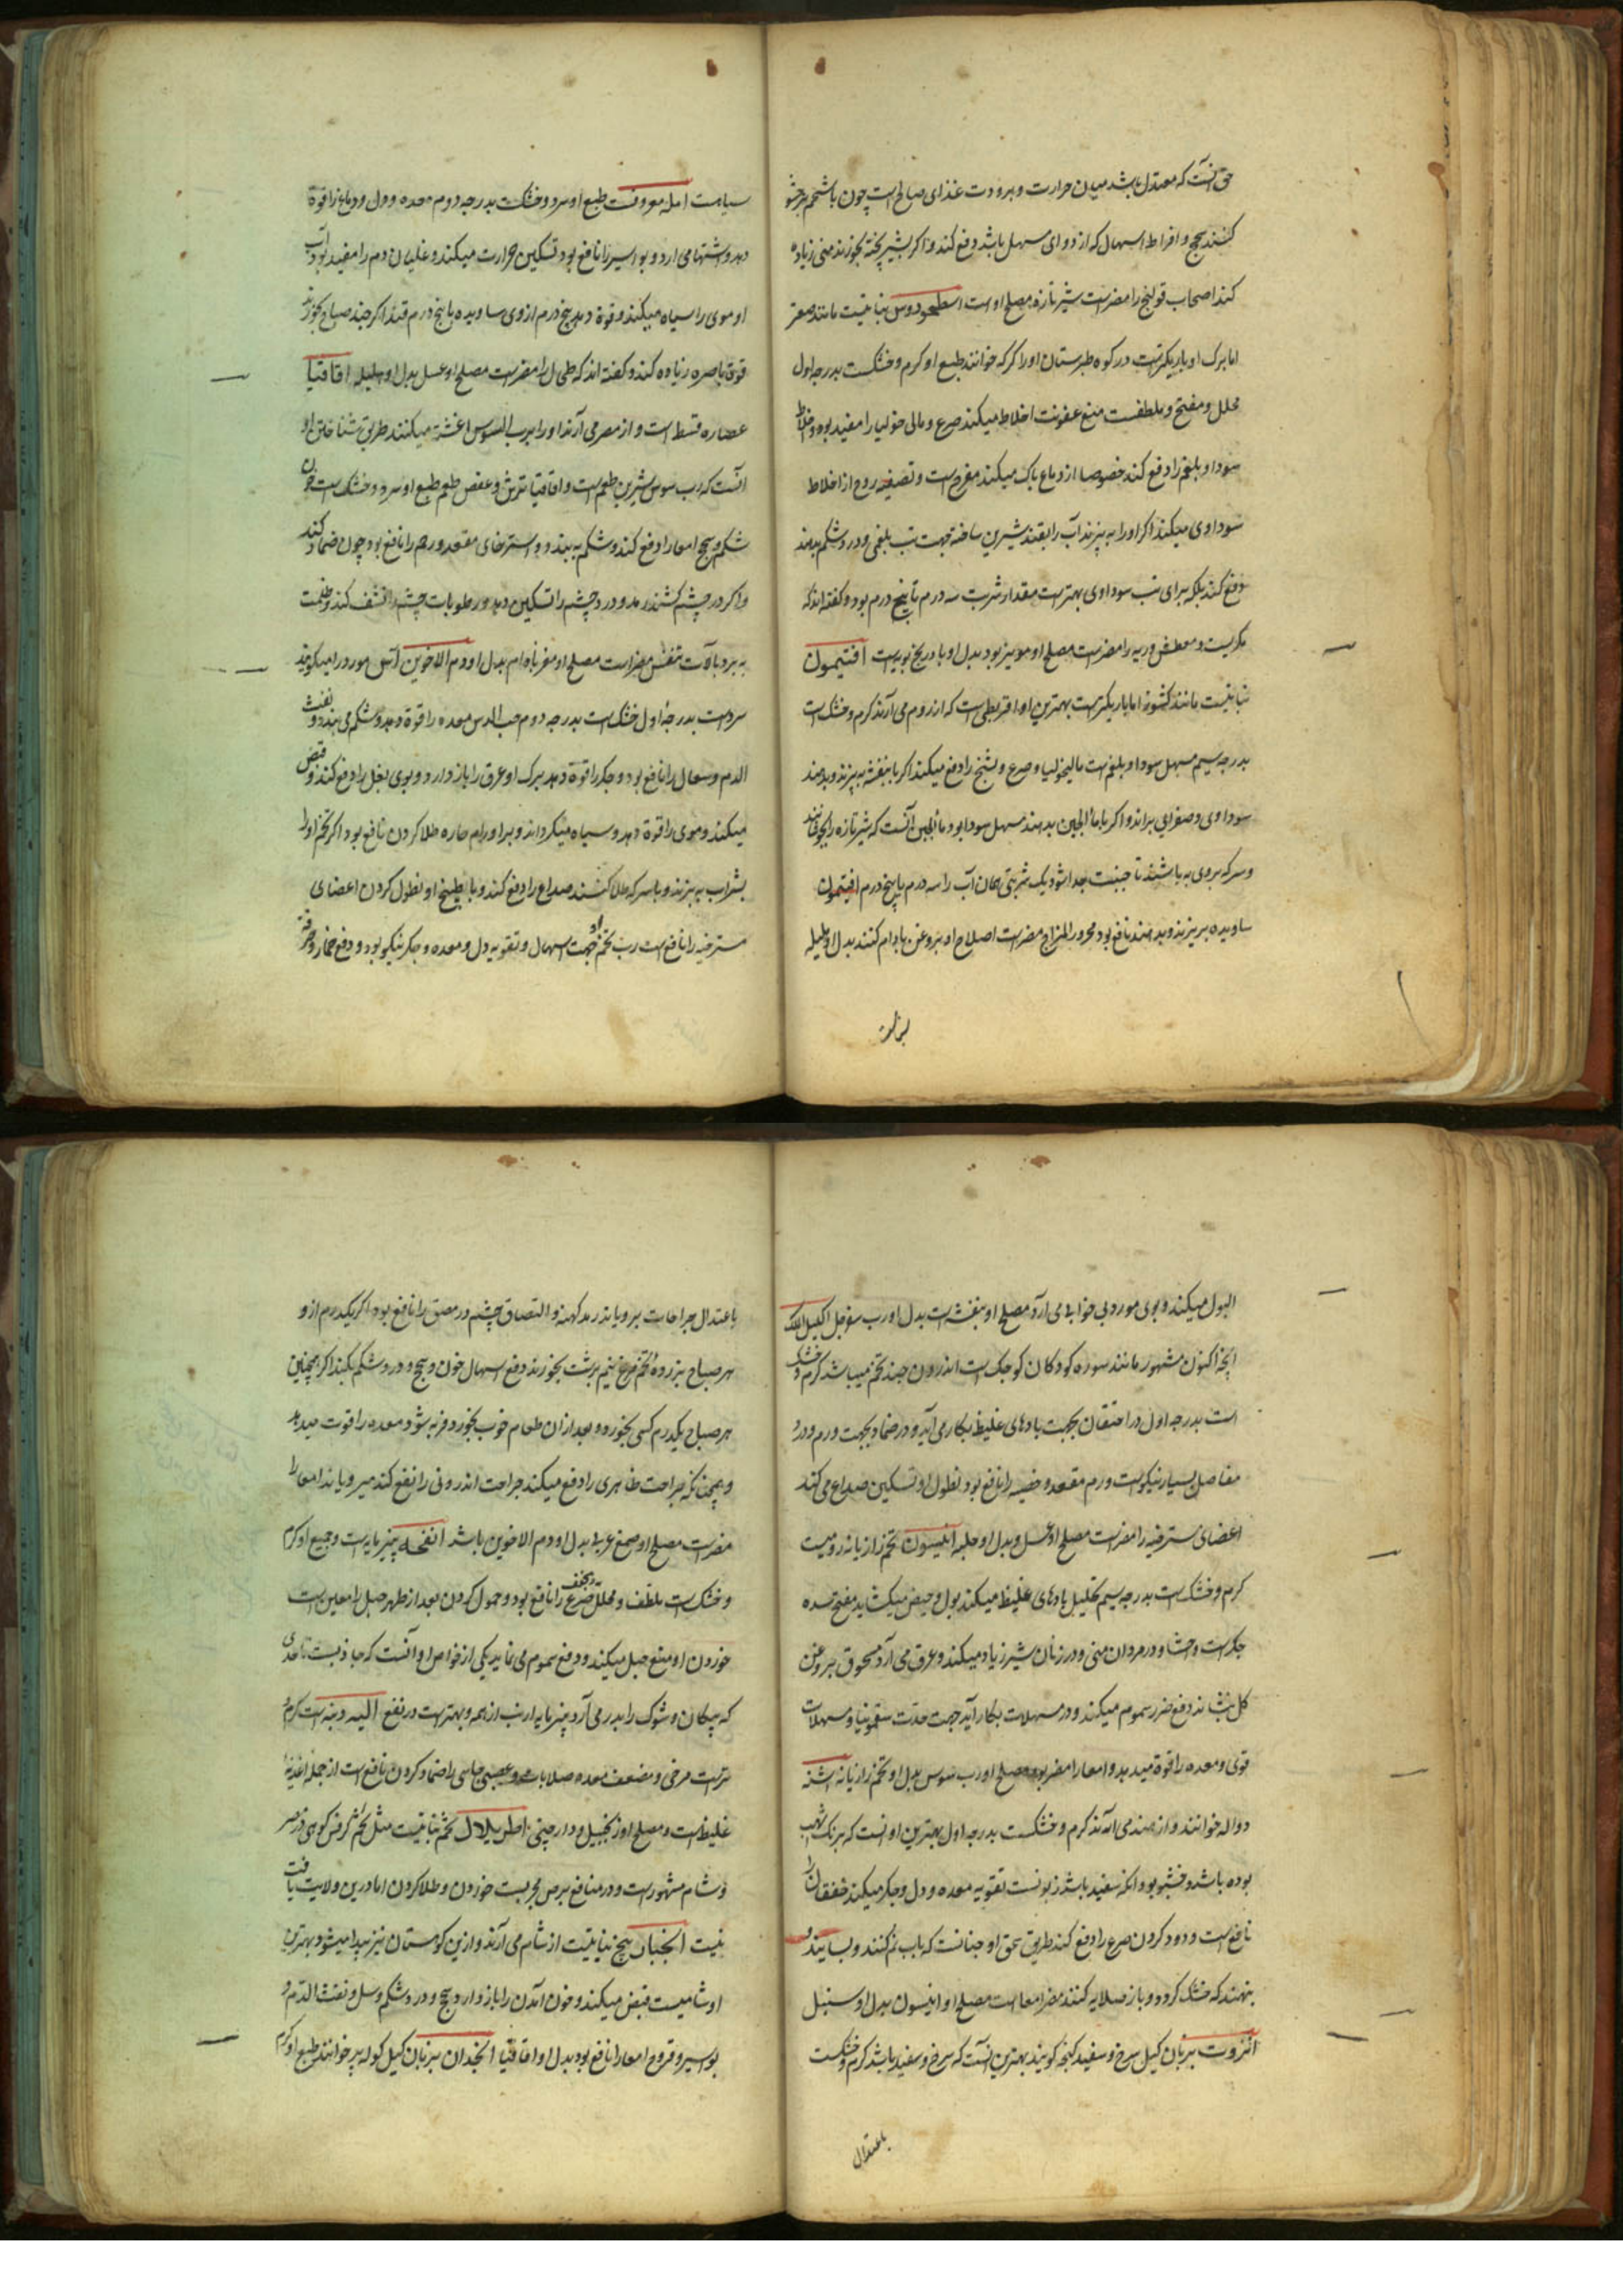 حق آنست که معتدل باشد میان حرارت و برودت غذای صالح است چون با شحم بز حشو
کنند سحج و افراط اسهال که از دوای مسهل باشد دفع کند و اگر بشیر پخته بخورند منی زیاده
کند اصحاب قولنج را مضرست شیر تازه مصلح اوست اسطوخودوس نباتیست مانند صعتر
اما برک او باریکترست در کوه طبرستان او را کرکه خوانند طبع او کرم و خشکست بدرجه اول
محلل و مفتح و ملطفست منع عفونت اخلاط میکند صرع و مالیخولیا را مفید بود و اخلاط
سودا و بلغم را دفع کند خصوصا از دماغ پاک میکند مفرح است و تصفیه روح از اخلاط
سوداوی میکند اگر او را به پزند آب را بقند شیرین ساخته جهت تب بلغمی و درد شکم بدهند
دفع کند بلکه برای تب سوداوی بهترست مقدار شربت سه درم تا پنج درم بود و کفته اند که
مکربست و معطش و ریه را مضرست مصلح او مویز بود بدل او بادرنجبویه است افتیمون
نباتیست مانند کشوث اما باریکترست بهترین او اقریطی است که از روم می آرند کرم و خشک است
بدرجه سیم مسهل سودا و بلغم است مالیخولیا و صرع و تشنج را دفع میکند اگر با بنفشه به پزند و بدهند
سوداوی و صفرایی براند و اگر با ماء الجبن بدهند مسهل سودا بود ماء الجبن آنست که شیر تازه را بجوشانند
و سرکه بروی به پاشند تا جبنیت جدا شود یک شربتی همان آب را سه درم یا پنج درم افتیمون
ساویده بریزند و بدهند نافع بود محرور المزاج مضرست اصلاح او بروغن بادام کنند بدل او هلیله
سیاهست امله معروفست طبع او سرد و خشکست بدرجه دوم معده و دل و دماغ را قوة
دهد و اشتها می ارد و بواسیر را نافع بود تسکین حرارت میکند و غلیان دم را مفید بود آب
او موی را سیاه میکند و قوة دهد پنج درم از وی ساویده با پنج درم قند اگر چند صباح خورند
قوة باصره زیاده کند و کفته اند که طحال را مضرست مصلح او عسل بدل او هلیله اقاقیا
عصاره قسط است و از مصر می آرند او را برب السوس اغشته میکنند طریق شناختن او
انست که رب سوس شیرین طعم است و اقاقیا ترش و عفص طعم طبع او سرد و خشک است خون
شکم و سحج امعا را دفع کند و شکم به بندد و استرخای مقعد و رحم را نافع بود چون ضماد کند
و اگر در چشم کشند رمد و درد چشم را تسکین دهد و رطوبات چشم را نشف کند و ظلمت
به برد بآلات تنفس مضراست مصلح او مغز بادام بدل او دم الاخوین آس مورد را میکویند
سردست بدرجه اول خشک است بدرجه دوم حب الاس معده را قوة دهد و شکم می بندد و نفث
الدم و سعال را نافع بود و جکر را قوة دهد برک او عرق را باز دارد و بوی بغل را دفع کند و قبض
میکند و موی را قوة دهد و سیاه میکرداند و بر اورام حاره طلا کردن نافع بود اگر تخم او را
بشراب به پزند و با سرکه طلا کنند صداع را دفع کند و با طبیخ او نطول کردن اعضای
مسترخیه را نافع است رب تخم او جهت اسهال و تقویه دل و معده و جکر نیکو بود و دفع خمار و حرقة
البول میکند و بوی مورد بی خوابی می آرد مصلح او بنفشه است بدل او رب سفرجل اکلیل الملک
انچه اکنون مشهور مانند سوره کودکان کوچک است اندرون چند تخم میباشد کرم و خشک
است بدرجه اول در احتقان بجهت بادهای غلیظ بکار می آید و در ضماد بجهت ورم و درد
مفاصل بسیار نیکوست ورم مقعد و خصیه را نافع بود نطول او تسکین صداع می کند
اعضای مسترخیه را مضرست مصلح او عسل و بدل او حلبه انیسون تخم رازیانه رومیست
کرم و خشک است بدرجه سیم تحلیل بادهای غلیظ میکند بول و حیض میکشاید مفتح سده
جکرست و احشا و در مردان منی و در زنان شیر زیاد میکند و عرق می آرد مسحوق بروغن
کل بنشاند دفع ضرر سموم میکند و در مسهلات بکار آید جهت حدت سقمونیا و مسهلات
قوی و معده را قوة میدهد و امعا را مضر بود مصلح او رب سوس بدل او تخم رازیانه اشنه
دواله خوانند و از هند می آرند کرم و خشکست بدرجه اول بهترین او انست که برنک اشهب
بوده باشد و خشبو بود و انکه سفید باشد زبونست تقویه معده و دل و جکر میکند خفقان را
نافع است و دود کردن صرع را دفع کند طریق سحق او چنانست که باب نم کنند و بسایند و
بنهند که خشک کردد و باز صلایه کنند مضر امعا است مصلح او انیسون بدل او سنبل
انزروت بزبان کیل سرخ و سفید کنجه کویند بهترین انست که سرخ و سفید باشد کرم و خشکست
باعتدال جراحات برویاند رمد کهنه و التصاق چشم و رمص را نافع بود اگر یکدرم از و
هر صباح بزرده تخم مرغ نیم برشت بخورند دفع اسهال خون و سحج و درد شکم بکند اگر همچنین
هر صباح یکدرم کسی بخورد و بعد از ان طعام خوب بخورد فربه شود معده را قوت میدهد
و همچنانکه جراحت ظاهری را دفع میکند جراحت اندرونی را نفع کند میرویاند امعا را
مضرست مصلح او صمغ عربی بدل او دم الاخوین باشد انفحه پنیرمایه است و جمیع او کرم
و خشک است ملطف و محلل و مجفف صرع را نافع بود و حمول کردن بعد از طهر حبل را معین است
خوردن او منع حبل میکند و دفع سموم می نماید یکی از خواص او آنست که جاذبست تا حدی
که پیکان و شوک را بدر می آرد و پنیرمایه ارنب از همه بهترست در نفع الیه دنبه است کرم و
ترست مرخی و مضعف معده صلابات و عصبی جاسی را ضماد کردن نافع است از جمله اغذیه
غلیظ است و مصلح او زنجبیل و دارچینی اطریلال تخم نباتیست مثل تخم کرفس کوهی در مصر
و شام مشهورست و در منافع برص مجربست خوردن و طلا کردن اما درین ولایت یافت
نیست انجبار بیخ نباتیست از شام می آرند و ازین کوهستان نیز پیدا میشود بهترین
او شامیست قبض میکند و خون آمدن را باز دارد و سحج و درد شکم و سل و نفث الدم و
بوسیر و قروح امعا را نافع بود بدل او اقاقیا انجدان بزبان کیل کوله پر خوانند طبع او کرم
باعتدال